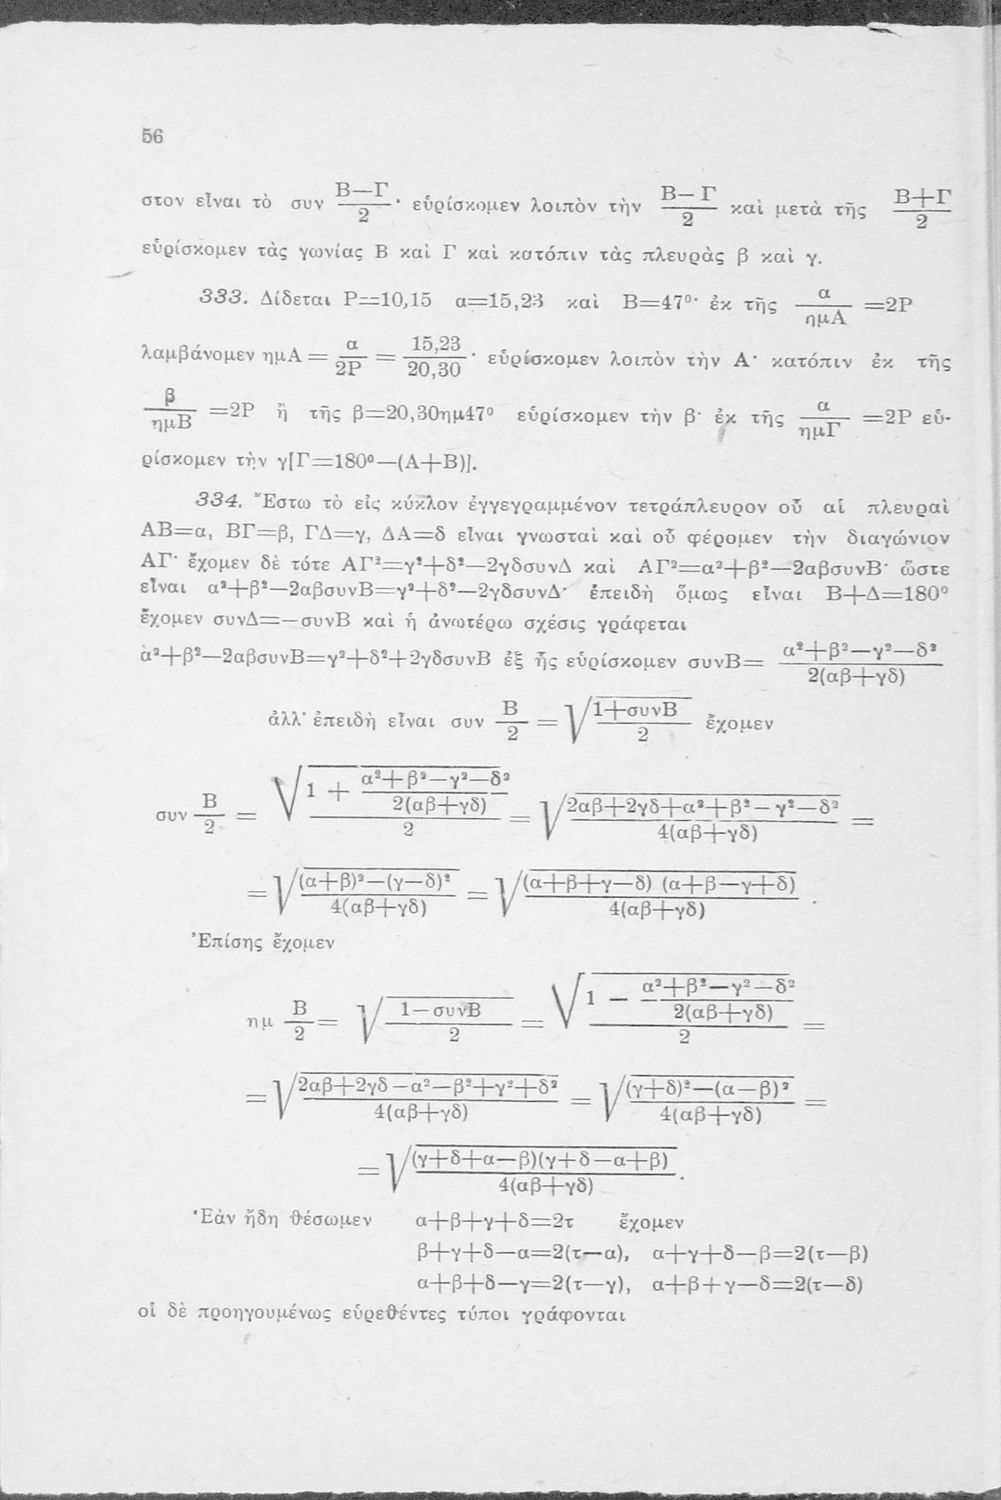 56
στον εἶναι τὸ συν (Β—Γ)/2· εὑρίσκομεν λοιπὸν τὴν (Β—Γ)/2 καὶ μετὰ τῆς (Β+Γ)/2
εὑρίσκομεν τὰς γωνίας Β καὶ Γ καὶ κατόπιν τὰς πλευρὰς β καὶ γ.
333. Δίδεται Ρ=10,15 α=15,23 καὶ Β=47⁰· ἐκ τῆς α/ημΑ =2Ρ
λαμβάνομεν ημΑ = α/2Ρ = 15,23/20,30· εὑρίσκομεν λοιπὸν τὴν Α· κατόπιν ἐκ τῆς
β/ημΒ =2Ρ ἢ τῆς β=20,30ημ47⁰ εὑρίσκομεν τὴν β· ἐκ τῆς α/ημΓ =2Ρ εὑ-
ρίσκομεν τὴν γ[Γ=180⁰—(Α+Β)].
334. Ἔστω τὸ εἰς κύκλον ἐγγεγραμμένον τετράπλευρον οὗ αἱ πλευραὶ
ΑΒ=α, ΒΓ=β, ΓΔ=γ, ΔΑ=δ εἶναι γνωσταὶ καὶ οὗ φέρομεν τὴν διαγώνιον
ΑΓ· ἔχομεν δὲ τότε ΑΓ²=γ²+δ²—2γδσυνΔ καὶ ΑΓ²=α²+β²—2αβσυνΒ· ὥστε
εἶναι α²+β²—2αβσυνΒ=γ²+δ²—2γδσυνΔ· ἐπειδὴ ὅμως εἶναι Β+Δ=180⁰
ἔχομεν συνΔ=—συνΒ καὶ ἡ ἀνωτέρω σχέσις γράφεται
α²+β²—2αβσυνΒ=γ²+δ²+2γδσυνΒ ἐξ ἧς εὑρίσκομεν συνΒ= (α²+β²—γ²—δ²)/2(αβ+γδ)
ἀλλ' ἐπειδὴ εἶναι συν Β/2 = √((1+συνΒ)/2) ἔχομεν
συν Β/2 = √((1 + (α²+β²—γ²—δ²)/2(αβ+γδ))/2) = √((2αβ+2γδ+α²+β²—γ²—δ²)/4(αβ+γδ)) =
= √(((α+β)²—(γ—δ)²)/4(αβ+γδ)) = √((α+β+γ—δ) (α+β—γ+δ)/4(αβ+γδ)) .
Ἐπίσης ἔχομεν
ημ Β/2 = √((1—συνΒ)/2) = √((1 — (α²+β²—γ²—δ²)/2(αβ+γδ))/2) =
= √((2αβ+2γδ—α²—β²+γ²+δ²)/4(αβ+γδ)) = √(((γ+δ)²—(α—β)²)/4(αβ+γδ)) =
= √((γ+δ+α—β)(γ+δ—α+β)/4(αβ+γδ)).
Ἐὰν ἤδη θέσωμεν α+β+γ+δ=2τ ἔχομεν
β+γ+δ—α=2(τ—α), α+γ+δ—β=2(τ—β)
α+β+δ—γ=2(τ—γ), α+β+γ—δ=2(τ—δ)
οἱ δὲ προηγουμένως εὑρεθέντες τύποι γράφονται